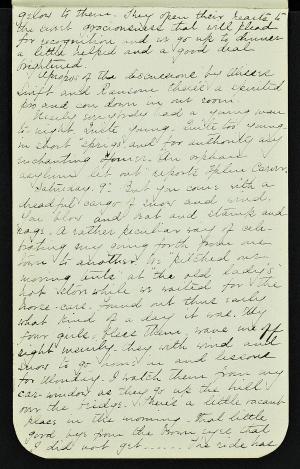 to them. They open their hearts to
the civil that will plead
for recognition and we go up to dinner
a little helped and a good deal
frightened.
Apropos of the discussions by Messrs
Swift and Ransom there's a excited
pro and con down in our room.
Nearly everybody had a young man
to-night. Quite young. Quite too young
in short "sprigs" and for authority
Enchanting The orphan
asylum let out reports
"Saturday, 9." But you come with a
dreadful cargo of snow and wind.
You blow and and and
rage. A rather peculiar way of cele-
brating my going forth from one
town to another. We "pitched our
morning tents" at the old lady's
hot while we waited for the
horse-cars. Found out thus early
what kind of a day it was. My
four girls, bless them, wave me off
right they with wind and
snow to go home in and lessons
for Monday. I watch them from my
car-window as they go up the hill
over the bridge. There's a little vacant
place in the morning. That little
good bye from the brown eyes that
I did not get...... The ride has